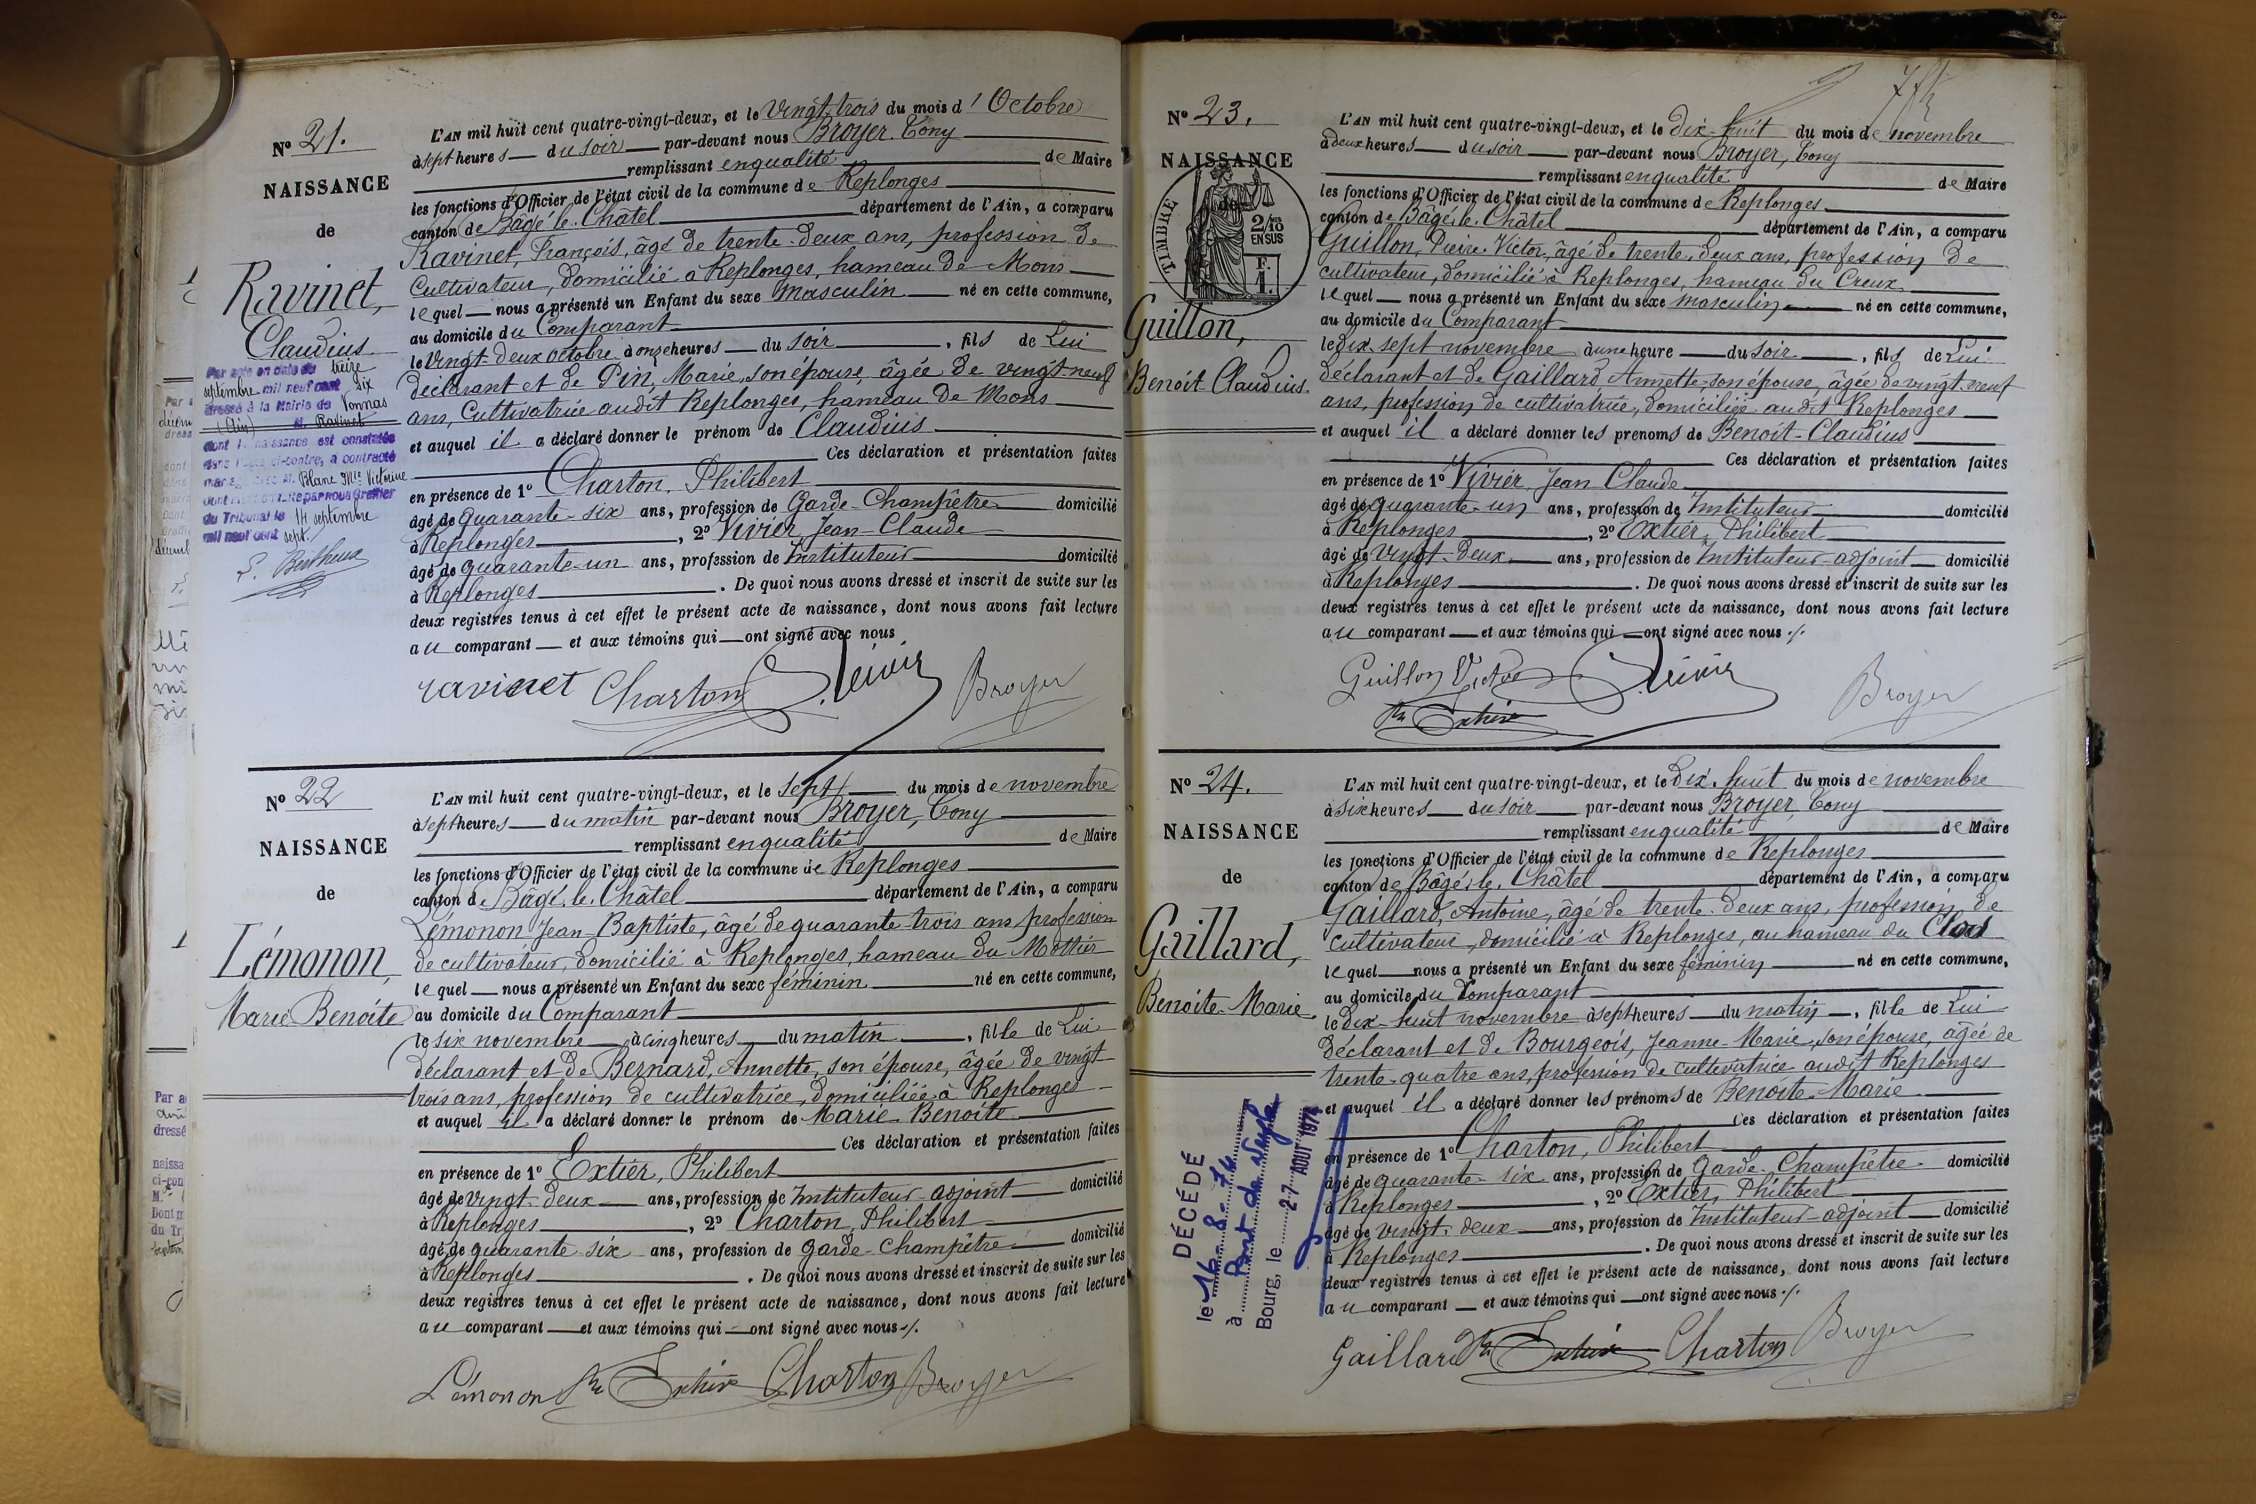 N° 21.
NAISSANCE
de
Ravinet,
Claudius
Par acte en date du treize
septembre mil neuf cent six
dressé à la Mairie de Vonnas
(Ain) M. Ravinet
dont la naissance est constatée
dans l'acte ci-contre, a contracté
mariage avec M. Blanc Mie Victorine
dont mention faite par nous Greffier
du Tribunal le 14 septembre
mil neuf cent sept.
L'AN mil huit cent quatre-vingt-deux, et le Vingt-trois du mois d'Octobre
à sept heures du soir par-devant nous Broyer Tony
remplissant en qualité de Maire
les fonctions d'Officier de l'état civil de la commune de Replonges
canton de Bâgé-le-Châtel département de l'Ain, a comparu
Ravinet, François, âgé de trente-deux ans, profession de
Cultivateur, domicilié à Replonges, hameau de Mons
lequel nous a présenté un Enfant du sexe masculin né en cette commune,
au domicile du Comparant
le Vingt-deux octobre à onze heures du soir, fils de Lui
déclarant et de Pin, Marie, son épouse, âgée de vingt-neuf
ans, Cultivatrice audit Replonges, hameau de Mons
et auquel il a déclaré donner le prénom de Claudius
Ces déclaration et présentation faites
en présence de 1° Charton, Philibert
âgé de quarante-six ans, profession de Garde-Champêtre domicilié
à Replonges, 2° Vivier, Jean-Claude
âgé de quarante-un ans, profession de Instituteur domicilié
à Replonges. De quoi nous avons dressé et inscrit de suite sur les
deux registres tenus à cet effet le présent acte de naissance, dont nous avons fait lecture
au comparant et aux témoins qui ont signé avec nous
ravinet Charton Vivier Broyer
N° 22
NAISSANCE
de
Lémonon,
Marie Benoite
L'AN mil huit cent quatre-vingt-deux, et le sept du mois de novembre
à sept heures du matin par-devant nous Broyer, Tony
remplissant en qualité de Maire
les fonctions d'Officier de l'état civil de la commune de Replonges
canton de Bâgé-le-Châtel département de l'Ain, a comparu
Lémonon Jean-Baptiste, âgé de quarante-trois ans, profession
de cultivateur, domicilié à Replonges, hameau du Mottier
lequel nous a présenté un Enfant du sexe féminin né en cette commune,
au domicile du Comparant
le six novembre à cinq heures du matin, fille de Lui
déclarant et de Bernard, Annette, son épouse, âgée de vingt
trois ans, profession de cultivatrice, domiciliée à Replonges
et auquel il a déclaré donner le prénom de Marie Benoite
Ces déclaration et présentation faites
en présence de 1° Extier, Philibert
âgé de vingt-deux ans, profession de Instituteur-adjoint domicilié
à Replonges, 2° Charton, Philibert
âgé de quarante-six ans, profession de garde-champêtre domicilié
à Replonges. De quoi nous avons dressé et inscrit de suite sur les
deux registres tenus à cet effet le présent acte de naissance, dont nous avons fait lecture
au comparant et aux témoins qui ont signé avec nous ./.
Lémonon Ph Extier Charton Broyer
N° 23.
NAISSANCE
de
TIMBRE
2/10
EN SUS
F.
1.
Guillon,
Benoit Claudius.
L'AN mil huit cent quatre-vingt-deux, et le dix-huit du mois de novembre
à deux heures du soir par-devant nous Broyer, Tony
remplissant en qualité de Maire
les fonctions d'Officier de l'état civil de la commune de Replonges
canton de Bâgé-le-Châtel département de l'Ain, a comparu
Guillon, Pierre-Victor, âgé de trente-deux ans, profession de
cultivateur, domicilié à Replonges, hameau du Creux
lequel nous a présenté un Enfant du sexe masculin né en cette commune,
au domicile du Comparant
le dix-sept novembre à une heure du soir, fils de Lui
déclarant et de Gaillard Annette son épouse, âgée de vingt-neuf
ans, profession de cultivatrice, domiciliée audit Replonges
et auquel il a déclaré donner les prénoms de Benoit-Claudius
Ces déclaration et présentation faites
en présence de 1° Vivier, Jean Claude
âgé de quarante-un ans, profession de Instituteur domicilié
à Replonges, 2° Extier, Philibert
âgé de vingt-deux ans, profession de Instituteur-adjoint domicilié
à Replonges. De quoi nous avons dressé et inscrit de suite sur les
deux registres tenus à cet effet le présent acte de naissance, dont nous avons fait lecture
au comparant et aux témoins qui ont signé avec nous ./.
Guillon Victor Vivier Broyer
Ph Extier
N° 24.
NAISSANCE
de
Gaillard,
Benoite-Marie
DÉCÉDÉ
le 16-8-74
à Pont de Veyle
Bourg, le 27 AOUT 1974
L'AN mil huit cent quatre-vingt-deux, et le dix-huit du mois de novembre
à six heures du soir par-devant nous Broyer, Tony
remplissant en qualité de Maire
les fonctions d'Officier de l'état civil de la commune de Replonges
canton de Bâgé-le-Châtel département de l'Ain, a comparu
Gaillard, Antoine, âgé de trente-deux ans, profession de
cultivateur, domicilié à Replonges, au hameau du Clos
lequel nous a présenté un Enfant du sexe féminin né en cette commune,
au domicile du Comparant
le dix-huit novembre à sept heures du matin, fille de Lui
déclarant et de Bourgeois, Jeanne-Marie, son épouse, âgée de
trente-quatre ans, profession de cultivatrice audit Replonges
et auquel il a déclaré donner les prénoms de Benoite-Marie
Ces déclaration et présentation faites
en présence de 1° Charton, Philibert
âgé de quarante-six ans, profession de Garde-Champêtre domicilié
à Replonges, 2° Extier, Philibert
âgé de vingt-deux ans, profession de Instituteur-adjoint domicilié
à Replonges. De quoi nous avons dressé et inscrit de suite sur les
deux registres tenus à cet effet le présent acte de naissance, dont nous avons fait lecture
au comparant et aux témoins qui ont signé avec nous ./.
Gaillard Ph Extier Charton Broyer